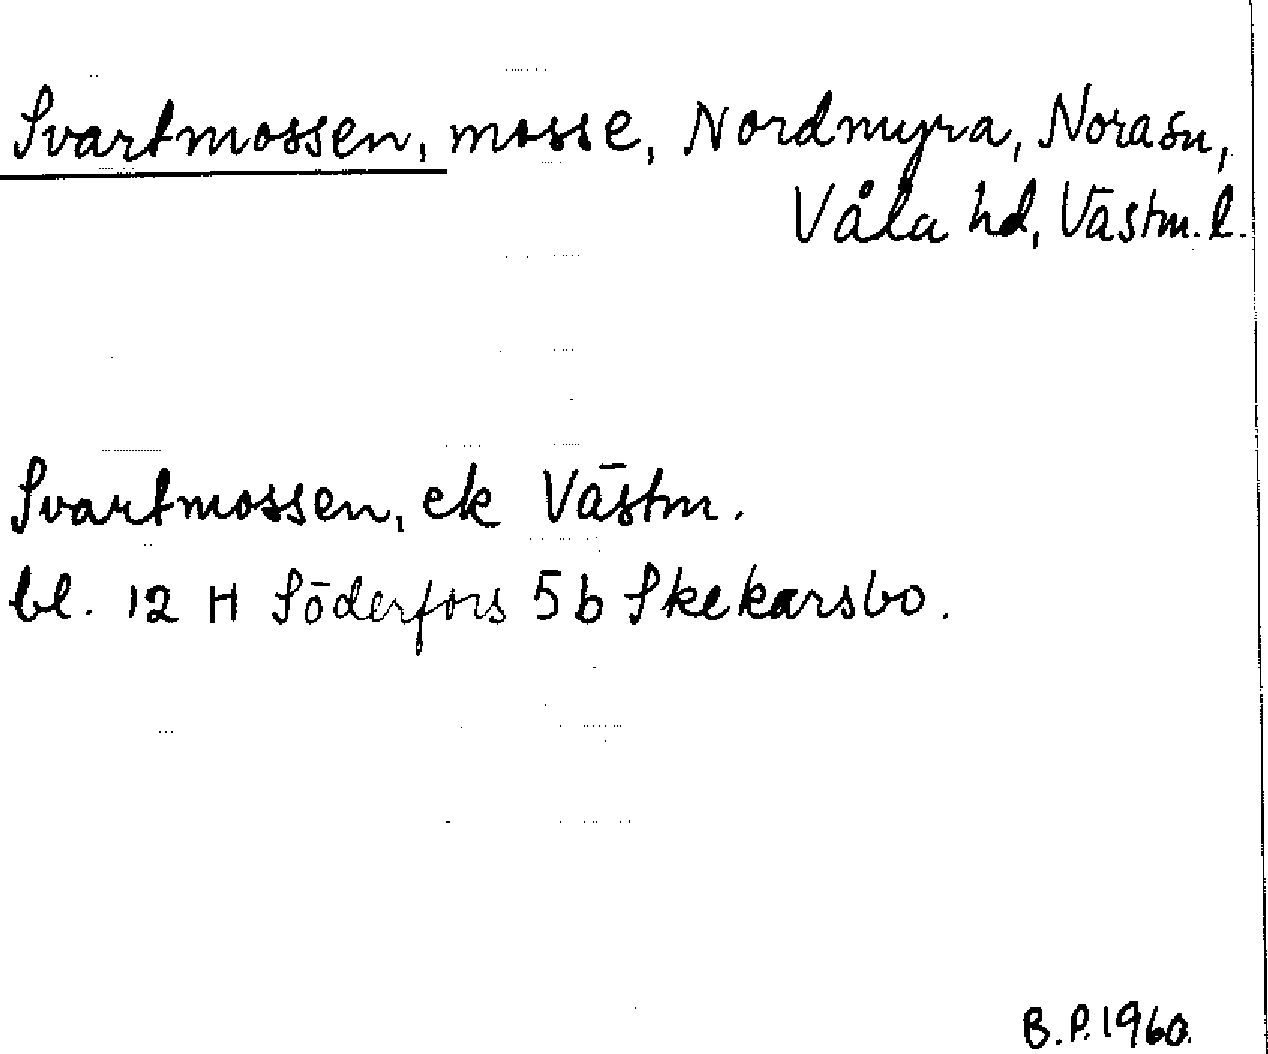 Svartmossen, mosse, Nordmyra, Nora sn,
Våla hd, Västm. l.
Svartmossen, ek Västm.
bl. 12 H Söderfors 5 b Skekarsbo.
B.P. 1960.